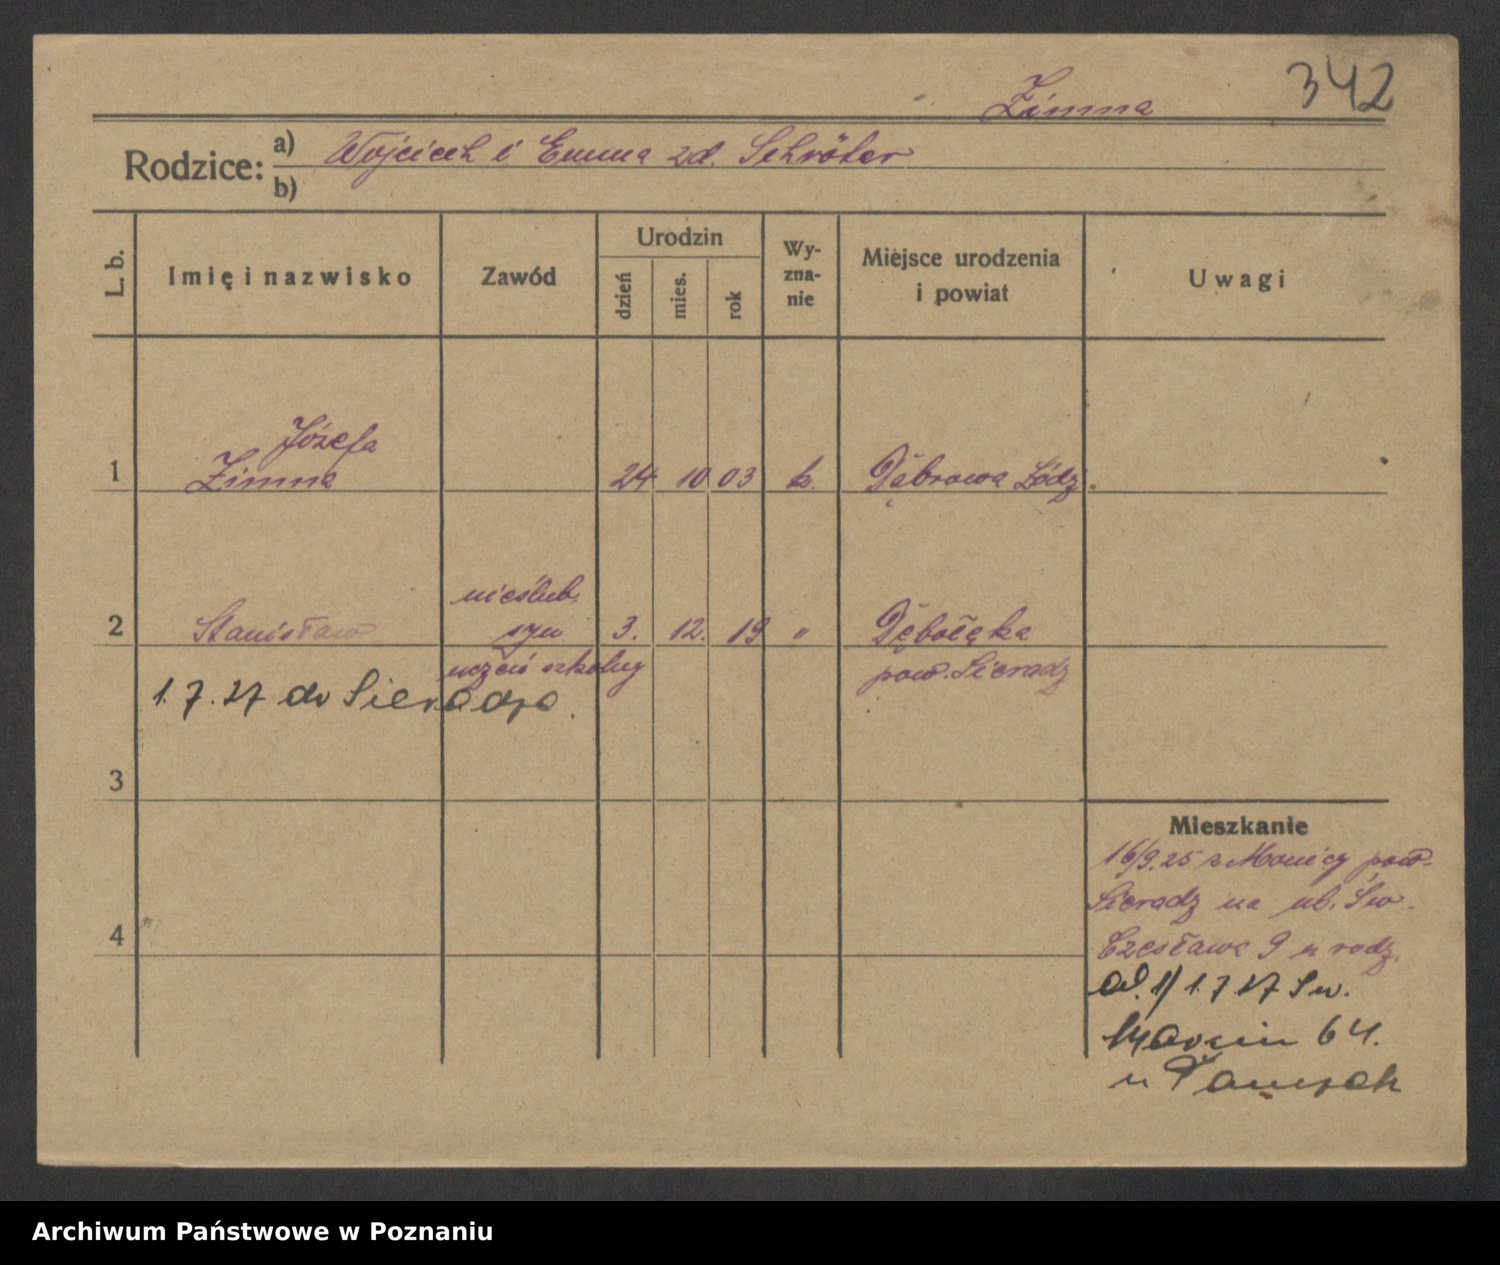 342
Zimna
Rodzice: a) Wojciech i Emma zd. Schröter
b)
L. b.
Imię i nazwisko
Zawód
Urodzin
dzień
mies.
rok
Wy-
zna-
nie
Miejsce urodzenia
i powiat
Uwagi
Józefa
1 Zimna 24 10 03 k. Dąbrowa Łódź
nieślub.
2 Stanisław syn 3. 12. 19 " Dębołęka
uczeń szkolny pow. Sieradz
1.7.27 do Sieradza.
3
Mieszkanie
16/9.25 z Monicy pow.
Sieradz na ul. Św.
4
Czesława 9 u rodz.
od. 1/1.7 27 Św.
Marcin 64.
u